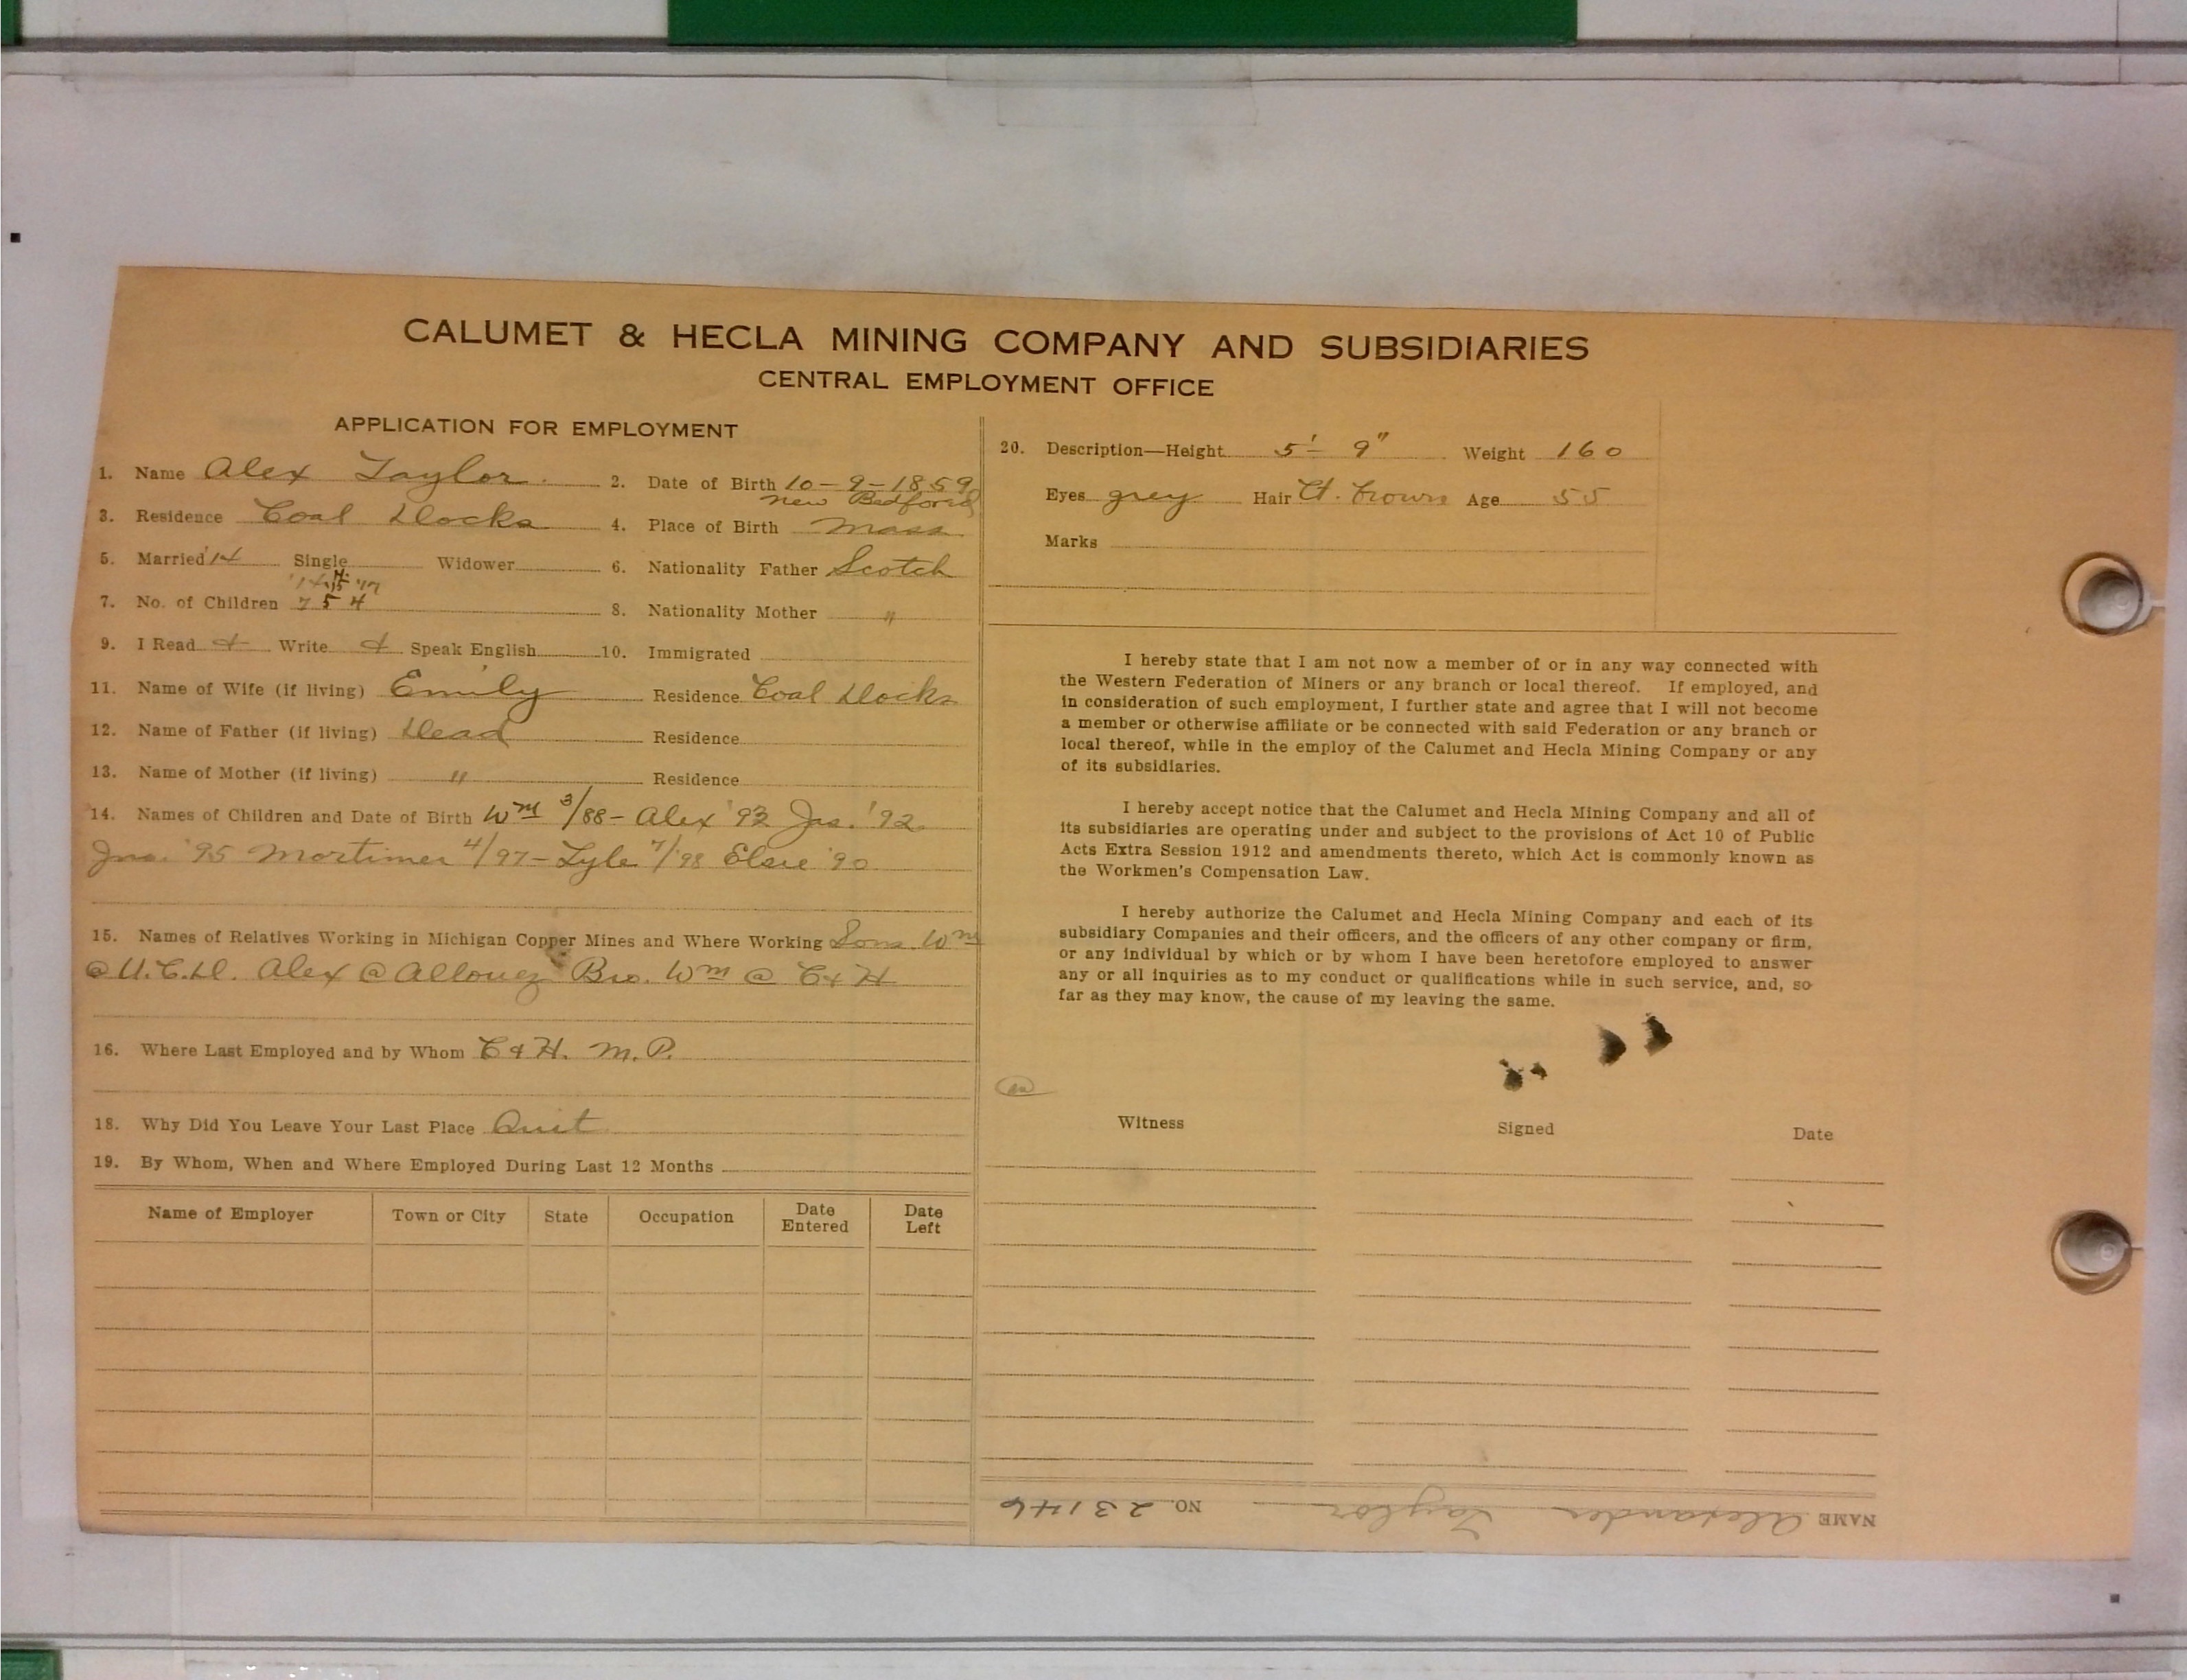 CALUMET & HECLA MINING COMPANY AND SUBSIDIARIES
CENTRAL EMPLOYMENT OFFICE
APPLICATION FOR EMPLOYMENT
1. Name Alex Taylor 2. Date of Birth 10-9-1859
New Bedford
3. Residence Coal Docks 4. Place of Birth Mass.
5. Married '14 Single Widower 6. Nationality Father Scotch
'14 '15 '17
7. No. of Children 7 5 4 8. Nationality Mother "
9. I Read & Write & Speak English 10. Immigrated
11. Name of Wife (if living) Emily Residence Coal Docks
12. Name of Father (if living) Dead Residence
13. Name of Mother (if living) " Residence
14. Names of Children and Date of Birth Wm 3/88 - Alex '93 Jas. '92
Jno. '95 Mortimer 4/97 - Lyle 7/98 Elsie '90
15. Names of Relatives Working in Michigan Copper Mines and Where Working Sons Wm
@ U.C.D. Alex @ Allouez Bro. Wm @ C & H
16. Where Last Employed and by Whom C & H. M. P.
18. Why Did You Leave Your Last Place Quit
19. By Whom, When and Where Employed During Last 12 Months
Name of Employer Town or City State Occupation Date Entered Date Left
20. Description—Height 5' 9" Weight 160
Eyes grey Hair Lt. brown Age 55
Marks
I hereby state that I am not now a member of or in any way connected with
the Western Federation of Miners or any branch or local thereof. If employed, and
in consideration of such employment, I further state and agree that I will not become
a member or otherwise affiliate or be connected with said Federation or any branch or
local thereof, while in the employ of the Calumet and Hecla Mining Company or any
of its subsidiaries.
I hereby accept notice that the Calumet and Hecla Mining Company and all of
its subsidiaries are operating under and subject to the provisions of Act 10 of Public
Acts Extra Session 1912 and amendments thereto, which Act is commonly known as
the Workmen's Compensation Law.
I hereby authorize the Calumet and Hecla Mining Company and each of its
subsidiary Companies and their officers, and the officers of any other company or firm,
or any individual by which or by whom I have been heretofore employed to answer
any or all inquiries as to my conduct or qualifications while in such service, and, so
far as they may know, the cause of my leaving the same.
Witness Signed Date
NAME Alexander Taylor NO. 23146